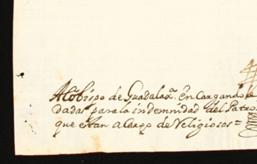 Al Obispo de Guadalaxª. en Cargando le
dadas para la indemnidad del Patro
que estan a Cargo de Religiosos=